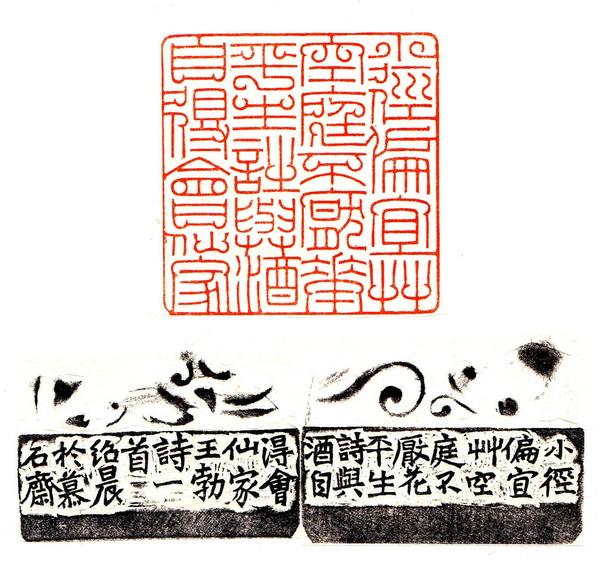 小徑偏宜艸
空庭不厭花
平生詩與酒
自得會仙家
小徑
偏宜
艸空
庭不
厭花
平生
詩與
酒自
淂會
仙家
王勃
詩一
首
紹晨
於慕
石齋